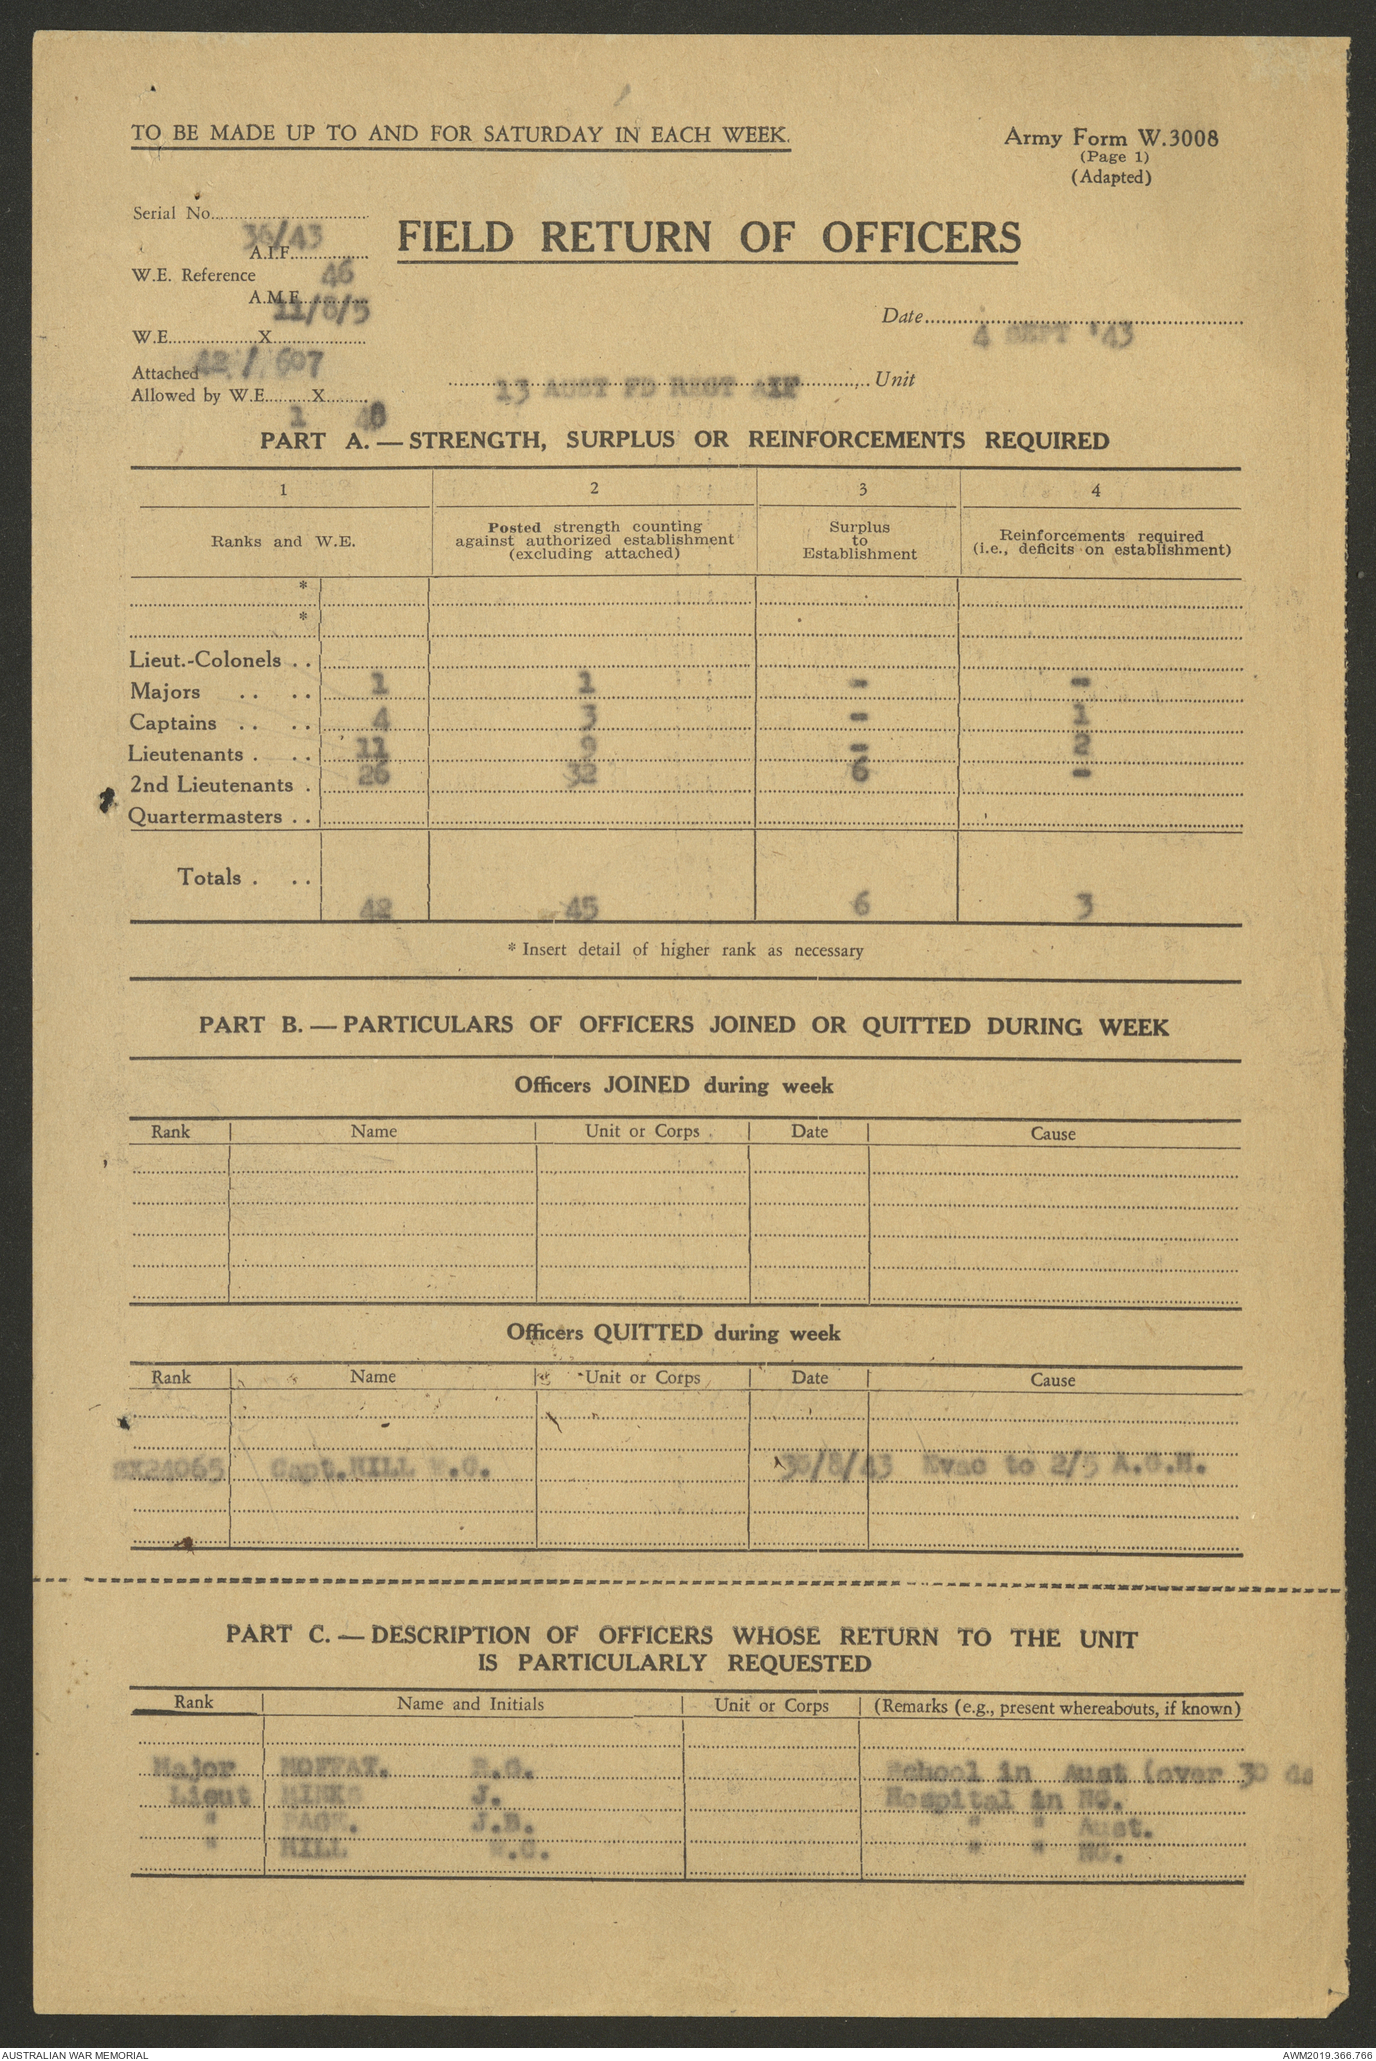 TO BE MADE UP TO AND FOR SATURDAY IN EACH WEEK.
Army Form W.3008
(Page 1)
(Adapted)
Serial No.
36/43
FIELD RETURN OF OFFICERS
A.I.F.
W.E. Reference 46
A.M.F.
11/8/5
Date
4 SEPT '43
W.E. X
42 / 607
Attached
Allowed by W.E. X
1 48
13 AUST FD REGT AIF Unit
PART A. — STRENGTH, SURPLUS OR REINFORCEMENTS REQUIRED
1 2 3 4
Ranks and W.E. Posted strength counting against authorized establishment (excluding attached) Surplus to Establishment Reinforcements required (i.e., deficits on establishment)
*
*
Lieut.-Colonels . .
1 1 - -
Majors . . . .
4 3 - 1
Captains . . . .
11 9 - 2
Lieutenants . . .
26 32 6 -
2nd Lieutenants .
Quartermasters . .
Totals . . .
42 45 6 3
* Insert detail of higher rank as necessary
PART B. — PARTICULARS OF OFFICERS JOINED OR QUITTED DURING WEEK
Officers JOINED during week
Rank Name Unit or Corps Date Cause
Officers QUITTED during week
Rank Name Unit or Corps Date Cause
Capt. HILL W.C. 30/8/43 Evac to 2/5 A.G.H.
PART C. — DESCRIPTION OF OFFICERS WHOSE RETURN TO THE UNIT
IS PARTICULARLY REQUESTED
Rank Name and Initials Unit or Corps (Remarks (e.g., present whereabouts, if known)
Major MOFFAT. School in Aust (over 30 da
Lieut J. Hospital in NG.
" PAGE. " " Aust.
" HILL W.C. " " NG.
AUSTRALIAN WAR MEMORIAL
AWM2019.366.766